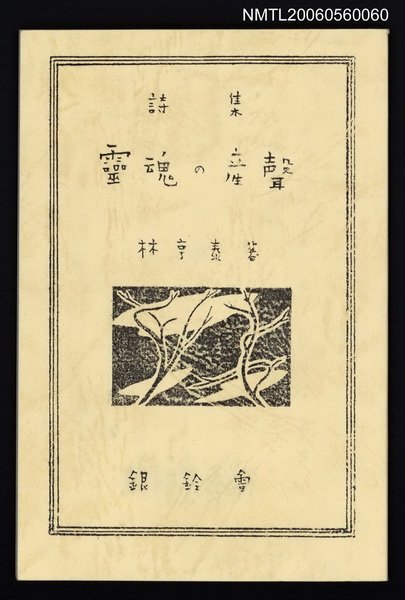 NMTL20060560060
詩集
靈魂の産聲
林亨泰著
銀鈴會